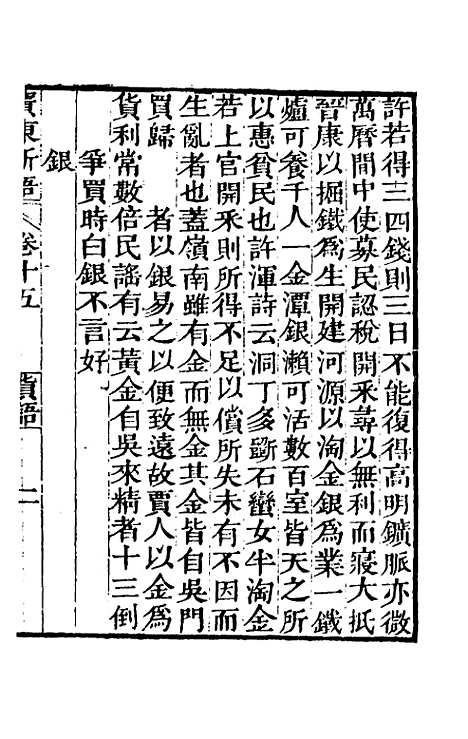 許若得三四錢則三日不能復得高明鑛脈亦微
萬曆間中使募民認稅開釆尋以無利而寢大抵
晉康以掘鐵爲生開建河源以淘金銀爲業一鐵
爐可養千人一金潭銀瀨可活數百室皆天之所
以惠貧民也許渾詩云洞丁多斲石蠻女半淘金
若上官開釆則所得不足以償所失未有不因而
生亂者也蓋嶺南雖有金而無金其金皆自吳門
買歸 者以銀易之以便致遠故賈人以金爲
貨利常數倍民謠有云黃金自吳來精者十三倒
爭買時白銀不言好
銀
廣東新語 卷十五 貨語 二